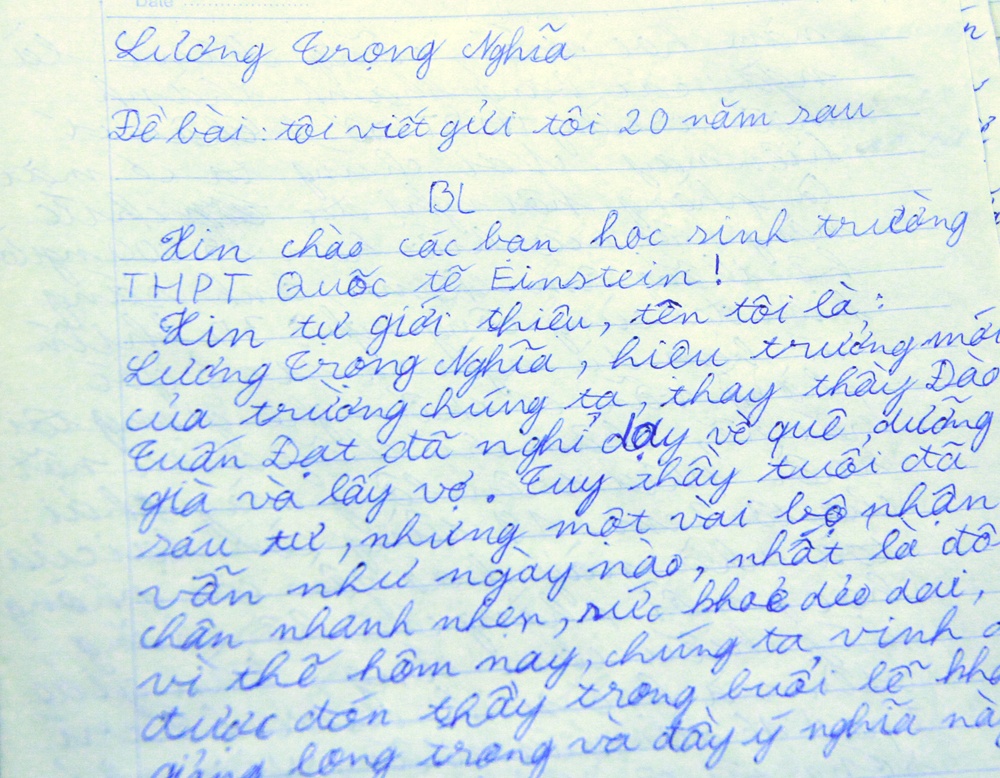 Date
Lương Trọng Nghĩa
Đề bài: tôi viết gửi tôi 20 năm sau
BL
Xin chào các bạn học sinh trường
THPT Quốc tế Einstein!
Xin tự giới thiệu, tên tôi là:
Lương Trọng Nghĩa, hiệu trưởng mới
của trường chúng ta, thay thầy Đào
Tuấn Đạt đã nghỉ dạy về quê dưỡng
già và lấy vợ. Tuy thầy tuổi đã
sáu tư, nhưng một vài bộ phận
vẫn như ngày nào, nhất là đôi
chân nhanh nhẹn, sức khoẻ dẻo dai,
vì thế hôm nay, chúng ta vinh
được đón thầy trong buổi lễ
giảng long trọng và đầy ý nghĩa